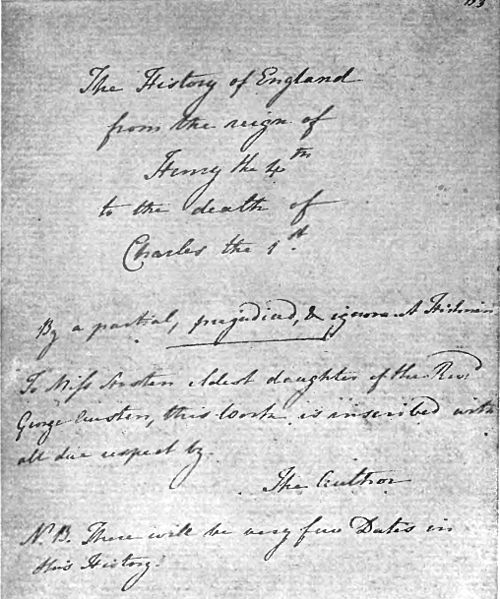 153
The History of England
from the reign of
Henry the 4th
to the death of
Charles the 1st.
By a partial, prejudiced, & ignorant Historian
To Miss Austen eldest daughter of the Revd
George Austen, this Work is inscribed with
all due respect by
The Author
N.B. There will be very few Dates in
this History.